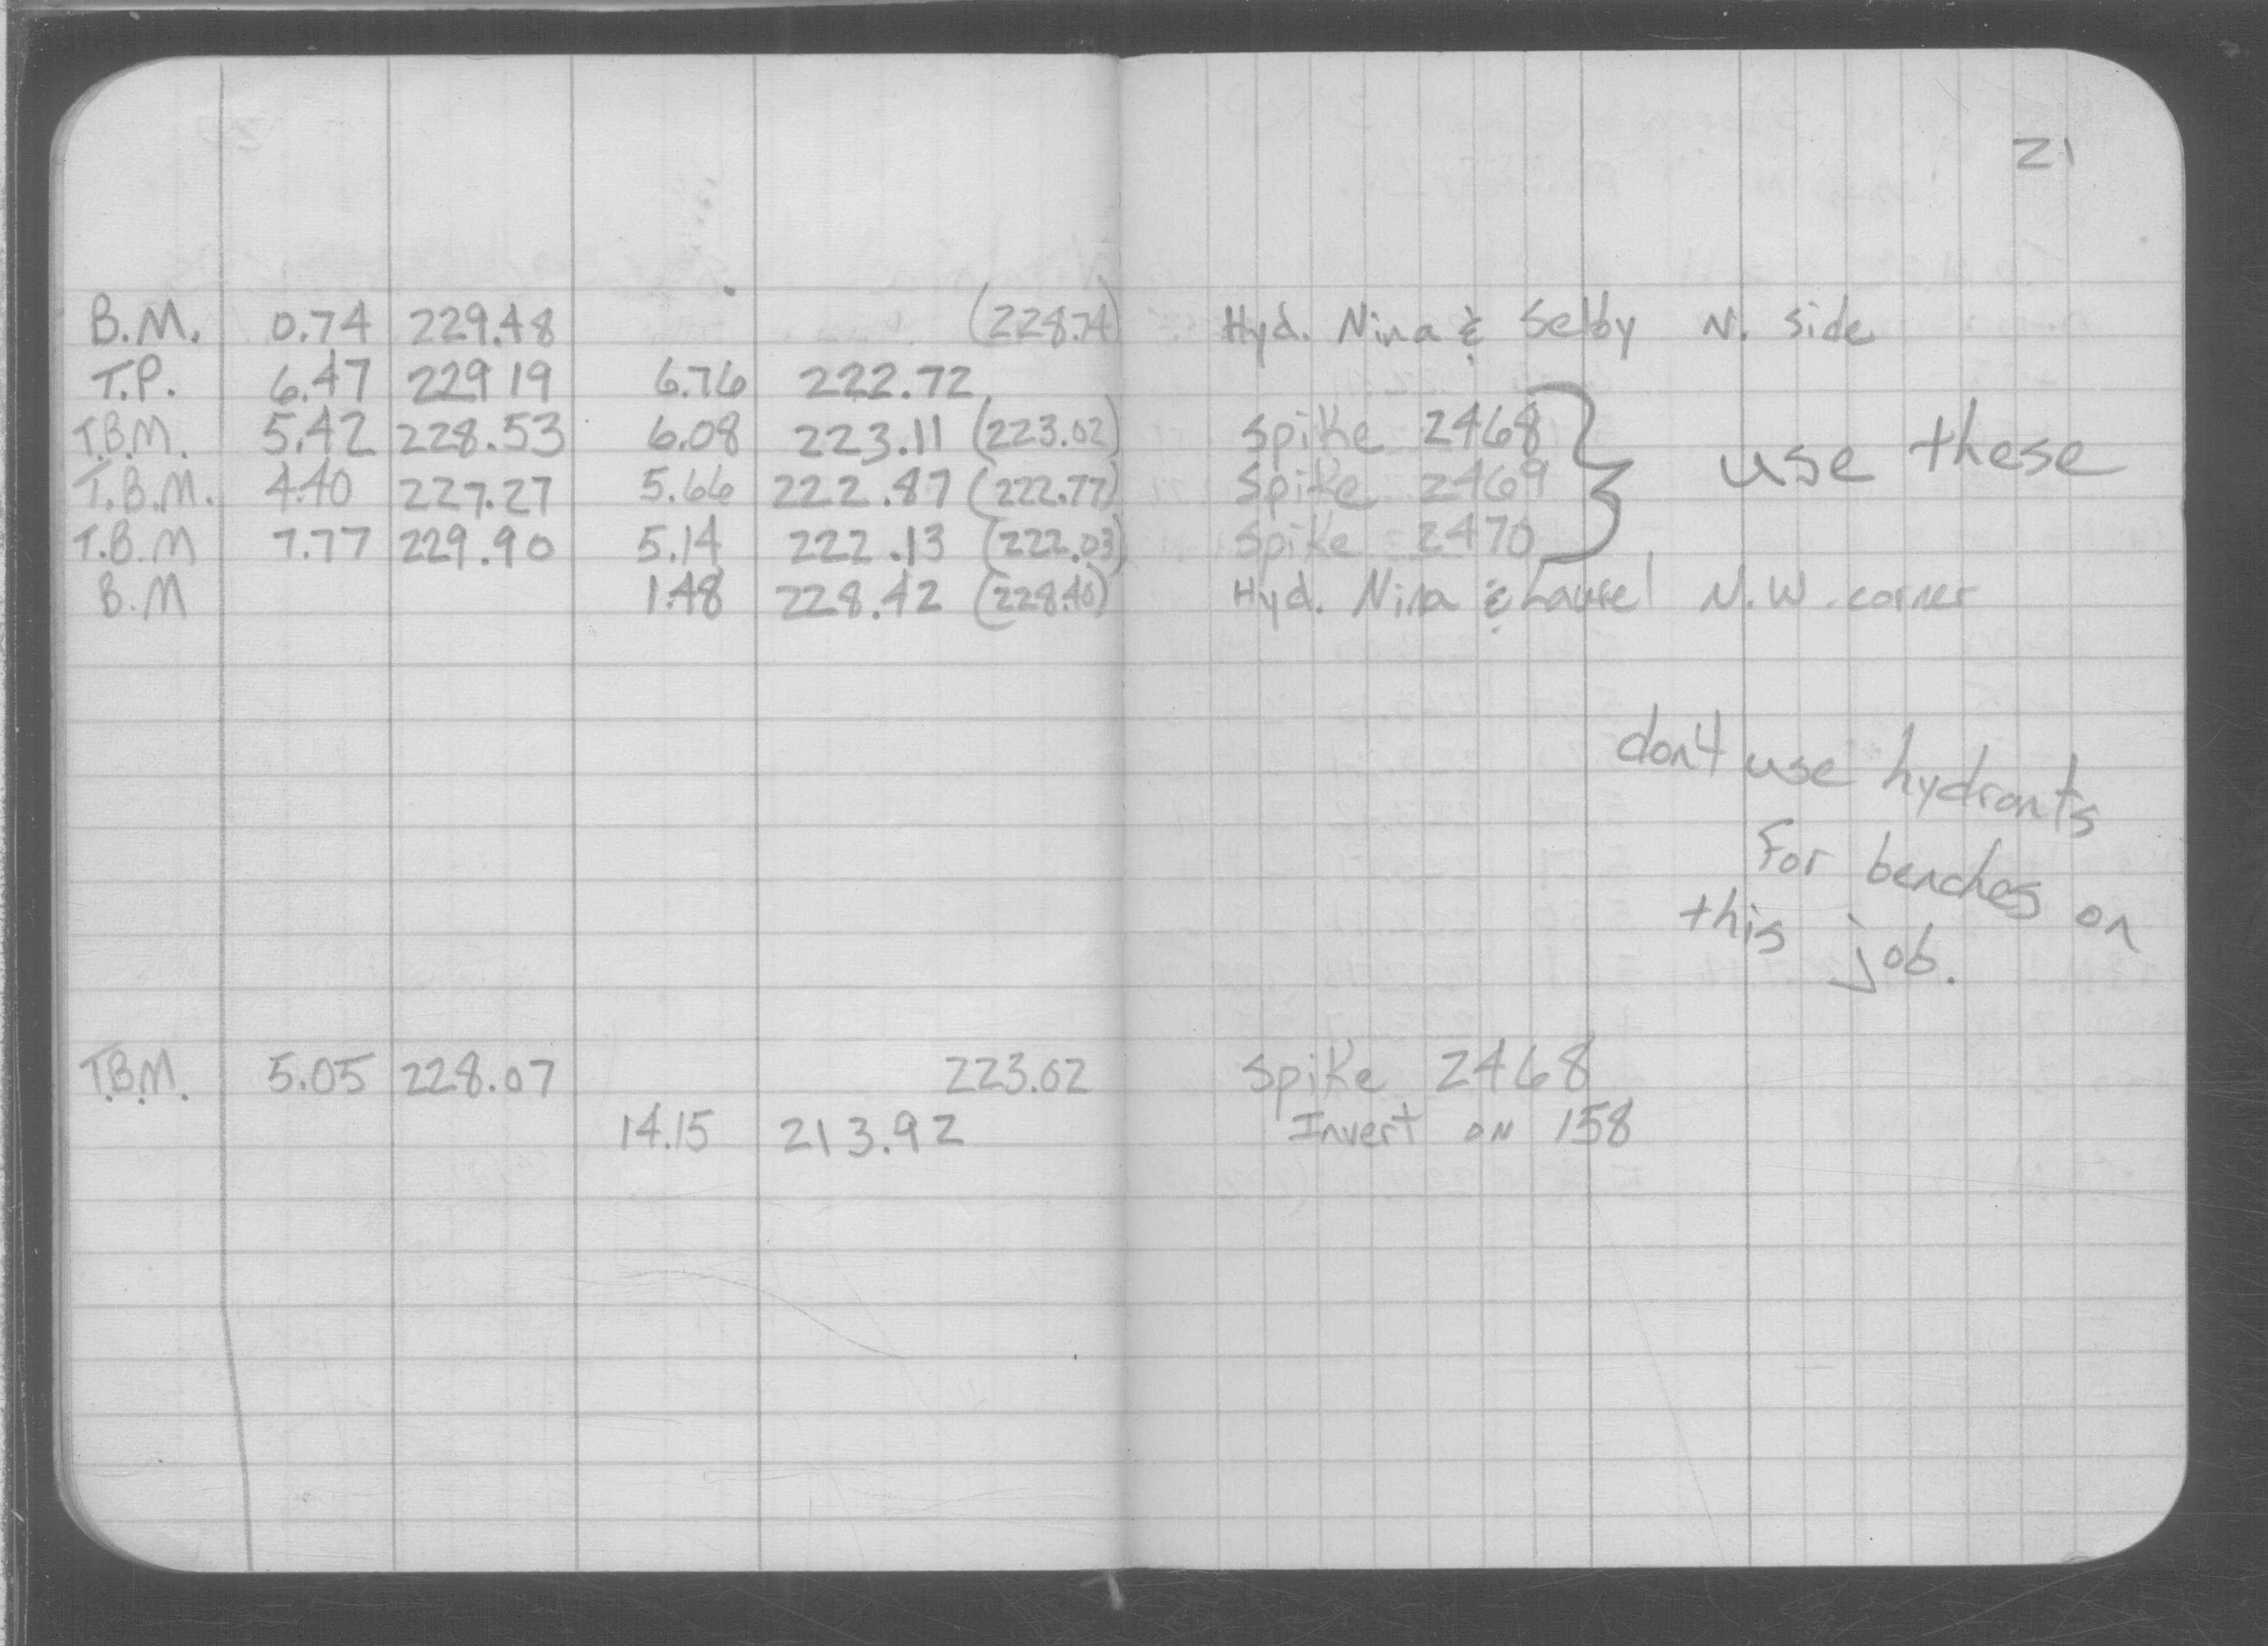 21
B.M. 0.74 229.48 (228.74) Hyd. Nina & Selby N. side
T.P. 6.47 229 19 6.76 222.72
T.B.M. 5.42 228.53 6.08 223.11 (223.02) Spike 2468
T.B.M. 4.40 227.27 5.66 222.87 (222.77) Spike 2469 use these
T.B.M 7.77 229.90 5.14 222.13 (222.03) Spike 2470
B.M 1.48 228.42 (228.40) Hyd. Nina & Laurel N.W. corner
don't use hydrants
For benches on
this job.
T.B.M. 5.05 228.07 223.02 Spike 2468
14.15 213.92 Invert ON 158